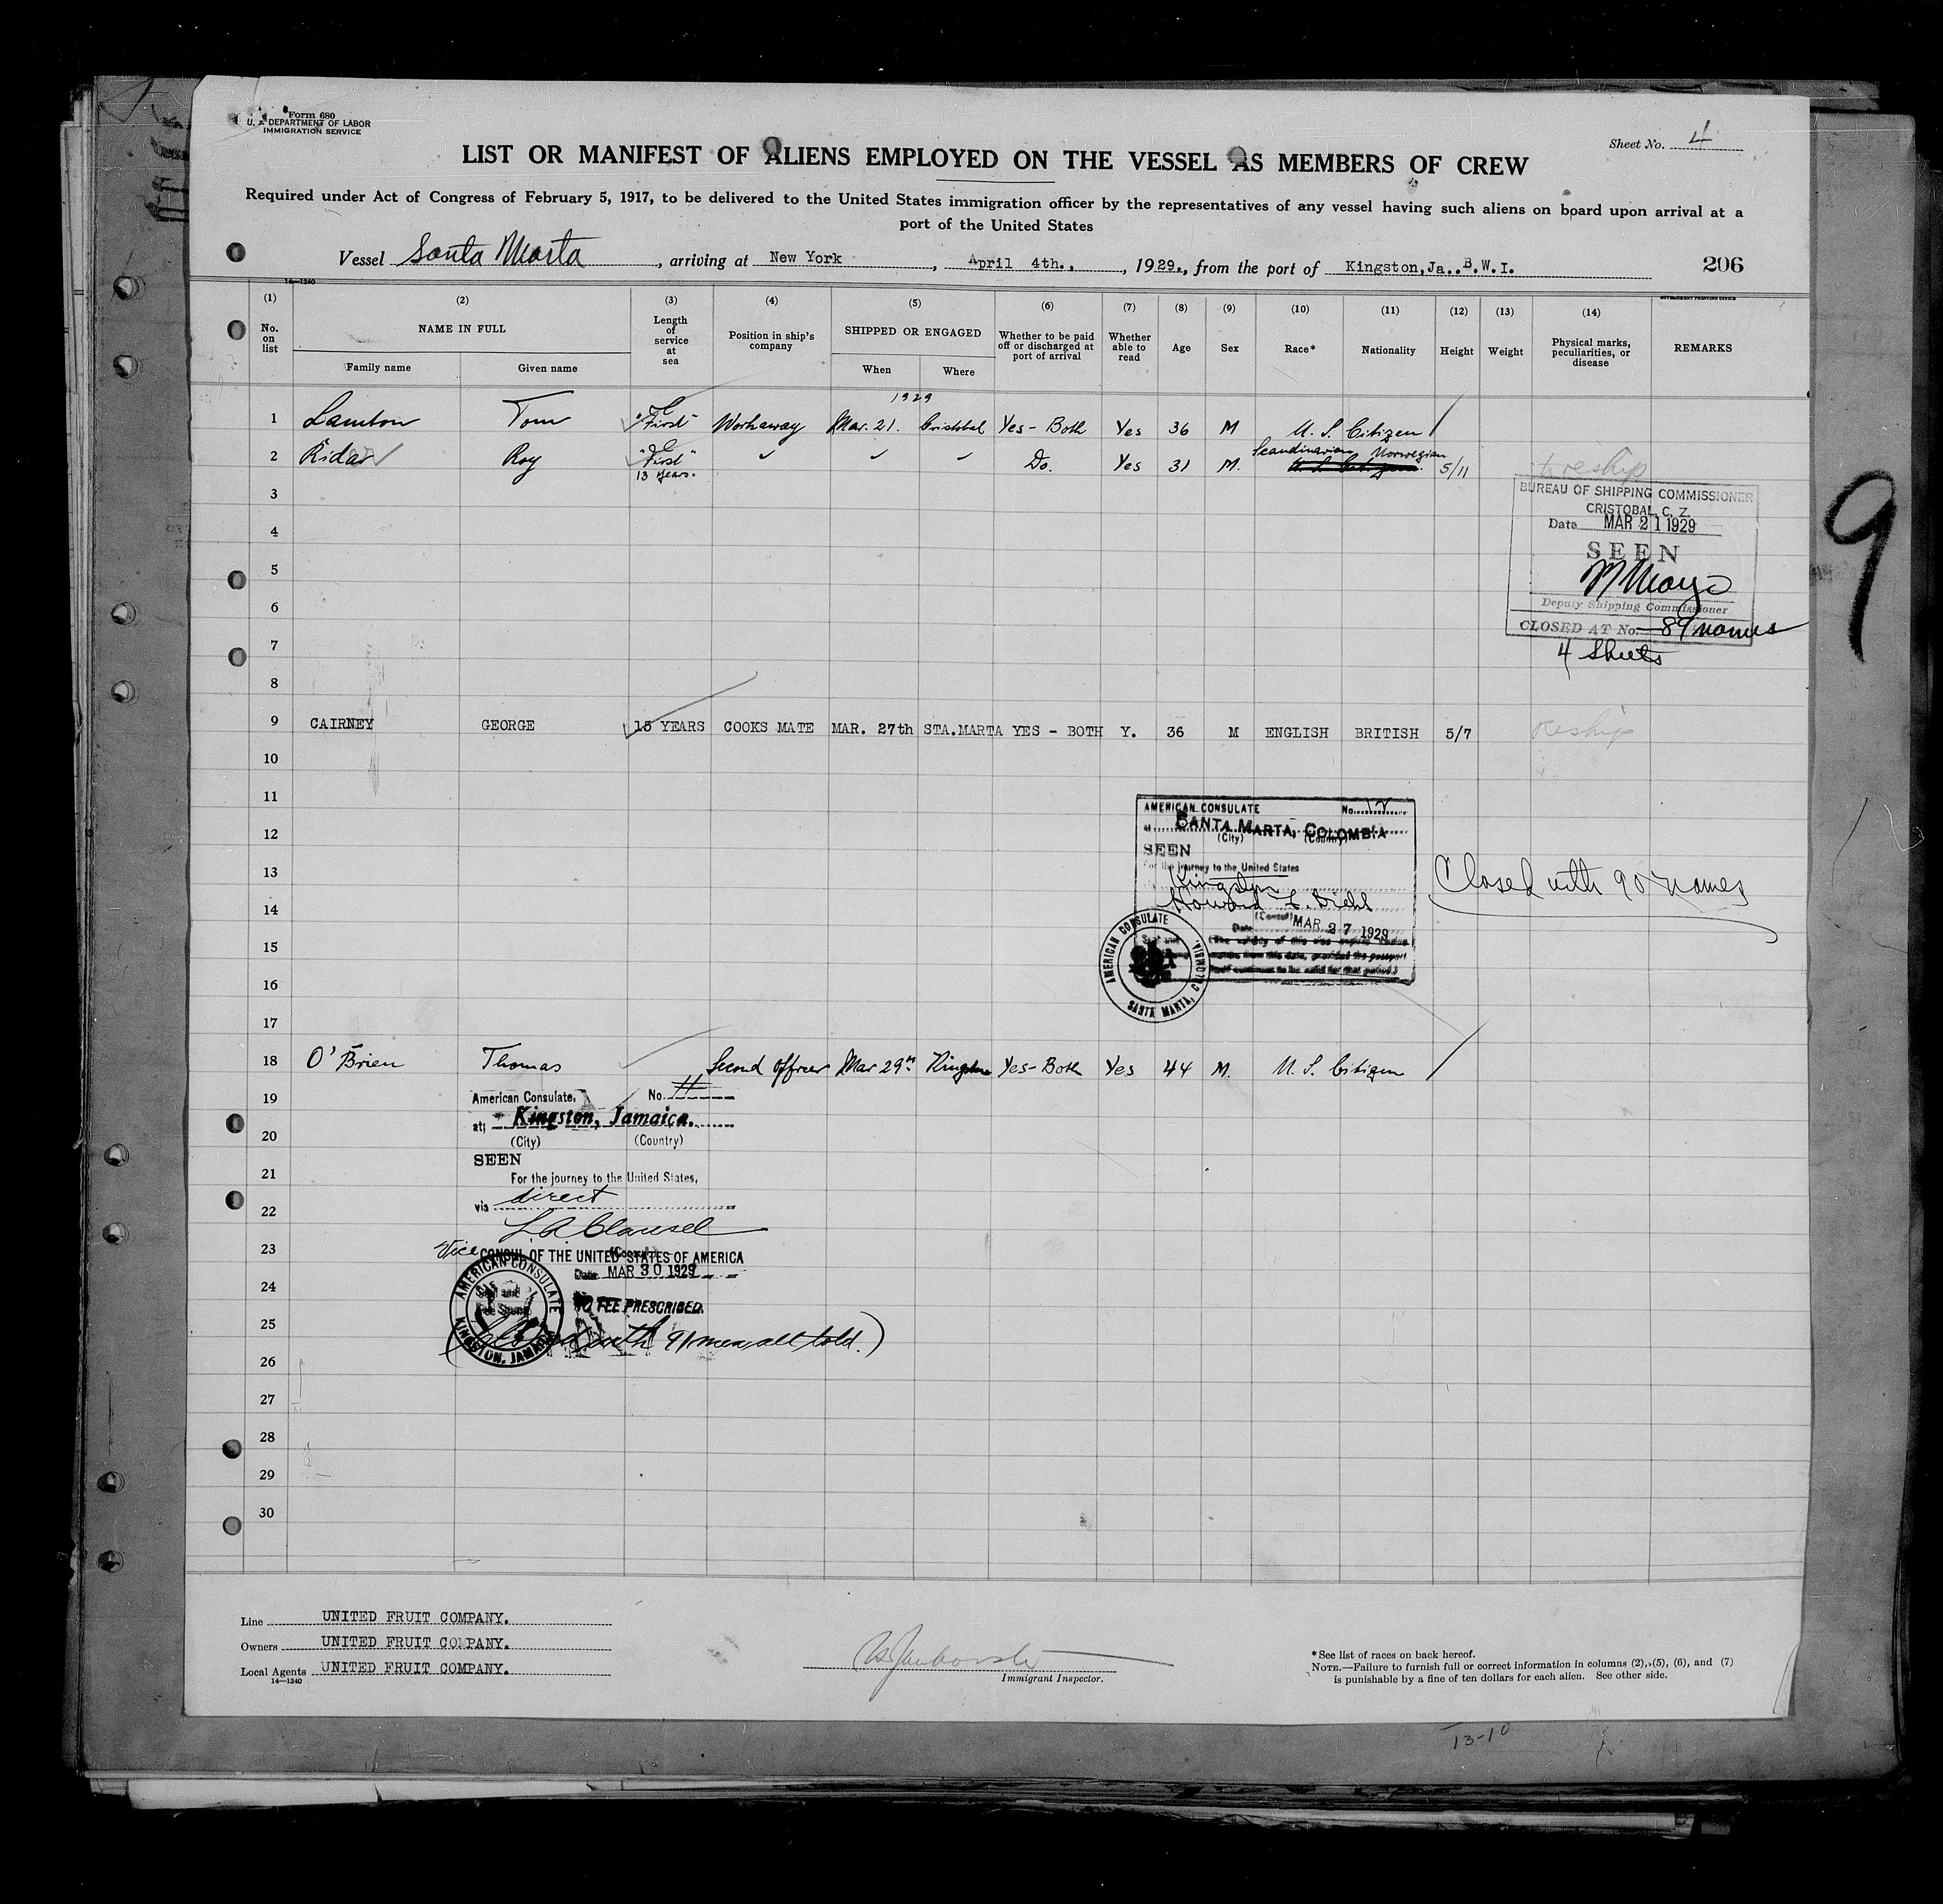 Form 680
U. S. DEPARTMENT OF LABOR
IMMIGRATION SERVICE
Sheet No. 4
LIST OR MANIFEST OF ALIENS EMPLOYED ON THE VESSEL AS MEMBERS OF CREW
Required under Act of Congress of February 5, 1917, to be delivered to the United States immigration officer by the representatives of any vessel having such aliens on board upon arrival at a
port of the United States
Vessel Santa Marta, arriving at New York, April 4th., 1929., from the port of Kingston,Ja..B.W.I.
206
14—1240
GOVERNMENT PRINTING OFFICE
(1) (2) (3) (4) (5) (6) (7) (8) (9) (10) (11) (12) (13) (14)
No. on list
NAME IN FULL
Family name Given name
Length of service at sea
Position in ship's company
SHIPPED OR ENGAGED
When Where
Whether to be paid off or discharged at port of arrival
Whether able to read
Age Sex Race* Nationality Height Weight
Physical marks, peculiarities, or disease
REMARKS
1929
1 Lamton Tom "First" Workaway Mar. 21. Cristobal Yes - Both Yes 36 M U. S. Citizen
2 Ridar Roy "First" Do. Yes 31 M. Scandinavian Norwegian 5/11 reship
13 years.
3
BUREAU OF SHIPPING COMMISSIONER
CRISTOBAL, C. Z.
Date MAR 21 1929
4
SEEN
5
6
Deputy Shipping Commissioner
CLOSED AT No. 89 names
7
4 Sheets
8
9 CAIRNEY GEORGE 15 YEARS COOKS MATE MAR. 27th STA.MARTA YES - BOTH Y. 36 M ENGLISH BRITISH 5/7 Reship
10
11
AMERICAN CONSULATE No. 12
at SANTA MARTA, COLOMBIA
12
(City) (Country)
SEEN
For the journey to the United States
13
Kingston
Closed with 90 names
14
Howard
(Consul)
Date MAR 27 1929
15
(The validity of this visa expires
months from this date, provided the passport
itself continues to be valid for that period.)
AMERICAN CONSULATE
SANTA MARTA, COLOMBIA.
16
17
18 O'Brien Thomas Second Officer Mar 29th Kingston Yes-Both Yes 44 M. U. S. Citizen
19
American Consulate, No.
at; Kingston, Jamaica.
20
(City) (Country)
SEEN
21
For the journey to the United States,
22
via direct
23
Vice CONSUL OF THE UNITED STATES OF AMERICA
Date MAR 30 1929
24
AMERICAN CONSULATE
Seal and
Fee Stamp
KINGSTON, JAMAICA
NO FEE PRESCRIBED.
25
(Closed with 91 men, all told.)
26
27
28
29
30
Line UNITED FRUIT COMPANY.
Owners UNITED FRUIT COMPANY.
Local Agents UNITED FRUIT COMPANY.
14—1240
Immigrant Inspector.
*See list of races on back hereof.
NOTE.—Failure to furnish full or correct information in columns (2), (5), (6), and (7)
is punishable by a fine of ten dollars for each alien. See other side.
9
13-10